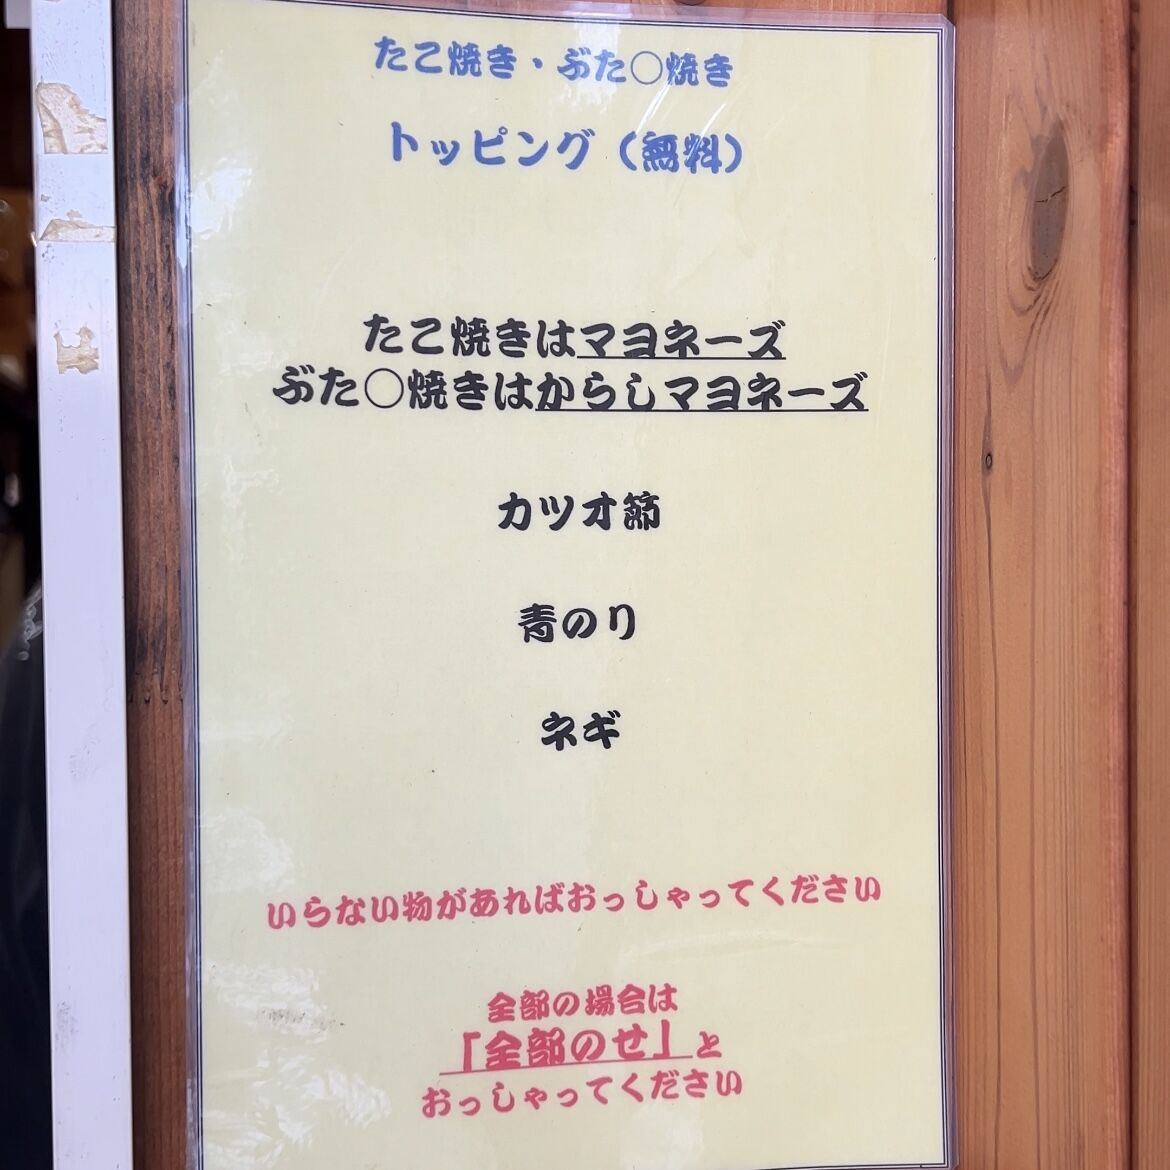 たこ焼き・ぶた〇焼き
トッピング（無料）
たこ焼きはマヨネーズ
ぶた〇焼きはからしマヨネーズ
カツオ節
青のり
ネギ
いらない物があればおっしゃってください
全部の場合は
「全部のせ」と
おっしゃってください